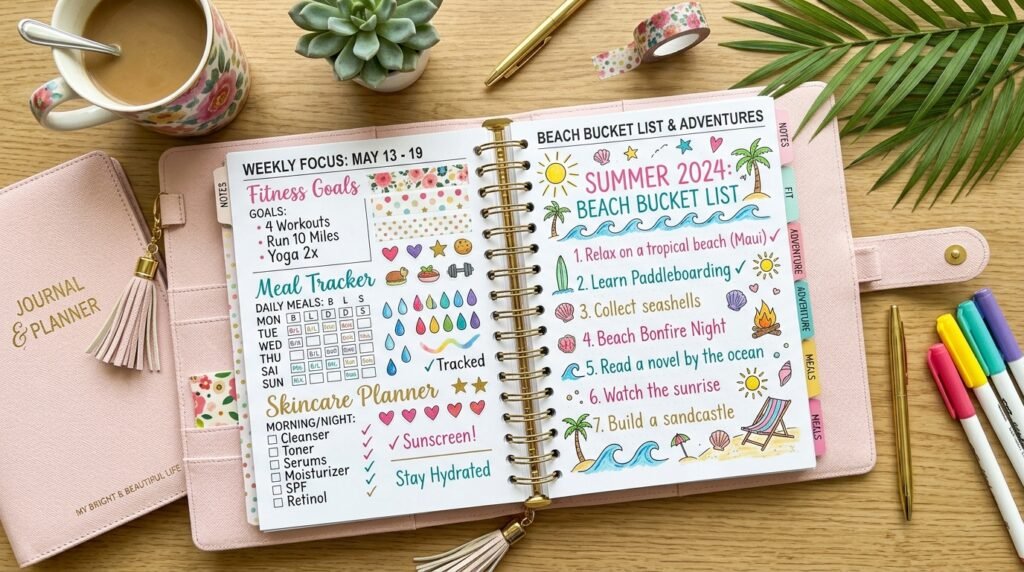 JOURNAL
& PLANNER
MY BRIGHT & BEAUTIFUL LIFE
NOTES
WEEKLY FOCUS: MAY 13 - 19
Fitness Goals
GOALS:
• 4 Workouts
• Run 10 Miles
• Yoga 2x
Meal Tracker
DAILY MEALS: B L S
MON B L D D S
TUE
WED
THU
SAT
SUN
✓Tracked
Skincare Planner
MORNING/NIGHT:
Cleanser
Toner
Serums
Moisturizer
SPF
Retinol
✓Sunscreen!
Stay Hydrated
BEACH BUCKET LIST & ADVENTURES
SUMMER 2024:
BEACH BUCKET LIST
1. Relax on a tropical beach (Maui) ✓
2. Learn Paddleboarding ✓
3. Collect seashells
4. Beach Bonfire Night
5. Read a novel by the ocean
6. Watch the sunrise
7. Build a sandcastle
NOTES
FIT
ADVENTURE
ADVENTURE
MEALS
MEALS